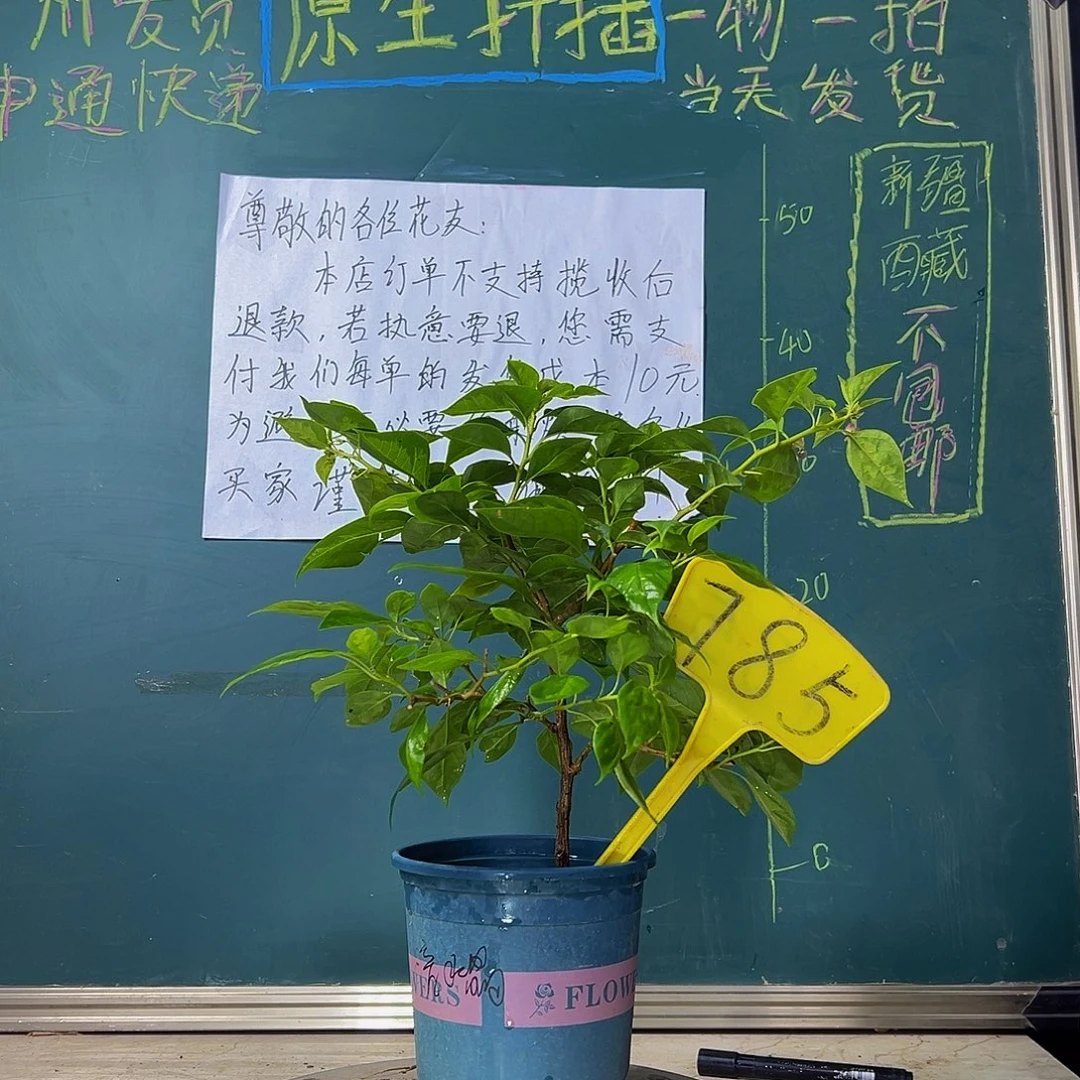 发货 原生扦插 一物一拍
申通快递 当天发货
尊敬的各位花友:
本店订单不支持揽收后
退款,若执意要退,您需支
付我们每单的发 成本10元
为避 必要
买家谨
50
40
20
0
新疆
西藏
不
包
邮
785
FLOW